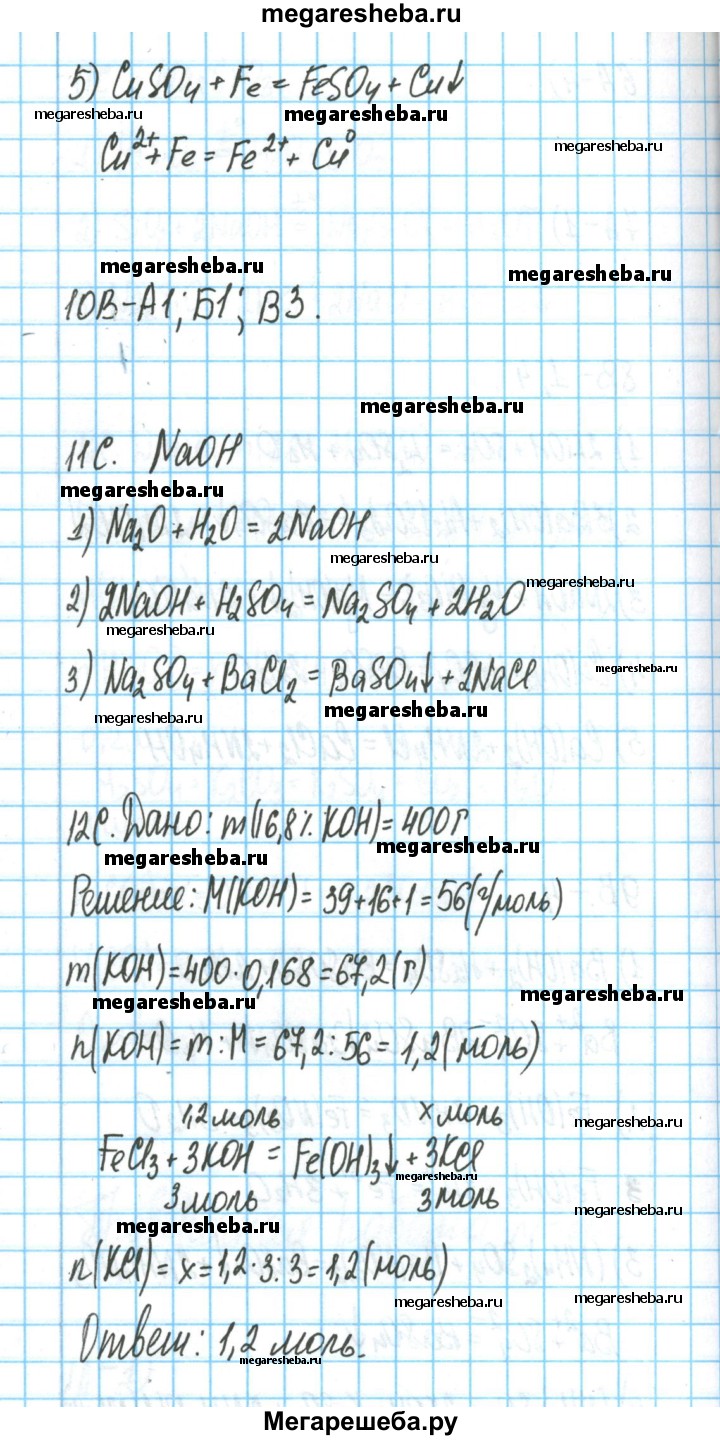 megaresheba.ru
5) CuSO₄ + Fe = FeSO₄ + Cu↓
megaresheba.ru megaresheba.ru
Cu²⁺ + Fe = Fe²⁺ + Cu⁰
megaresheba.ru
megaresheba.ru megaresheba.ru
10В – А1; Б1; В3.
megaresheba.ru
11С. NaOH
megaresheba.ru
1) Na₂O + H₂O = 2NaOH
megaresheba.ru
2) 2NaOH + H₂SO₄ = Na₂SO₄ + 2H₂O
megaresheba.ru
megaresheba.ru
3) Na₂SO₄ + BaCl₂ = BaSO₄↓ + 2NaCl
megaresheba.ru
megaresheba.ru megaresheba.ru
12С. Дано: m(16,8% KOH) = 400г
megaresheba.ru megaresheba.ru
Решение: M(KOH) = 39+16+1 = 56(г/моль)
m(KOH) = 400·0,168 = 67,2(г)
megaresheba.ru megaresheba.ru
n(KOH) = m:M = 67,2:56 = 1,2(моль)
1,2 моль x моль
megaresheba.ru
FeCl₃ + 3KOH = Fe(OH)₃↓ + 3KCl
megaresheba.ru
3 моль 3 моль
megaresheba.ru
megaresheba.ru
n(KCl) = x = 1,2·3:3 = 1,2(моль)
megaresheba.ru megaresheba.ru
Ответ: 1,2 моль.
megaresheba.ru
Мегарешеба.ру